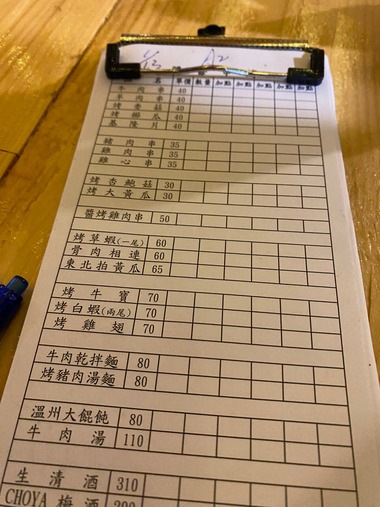 A2
名 單價 數量 加點 加點 加點 加點 加點
牛肉串 40
羊肉串 40
烤香菇 40
烤櫛瓜 40
基隆月 40
豬肉串 35
雞肉串 35
雞心串 35
烤杏鮑菇 30
烤大黃瓜 30
醬烤雞肉串 50
烤草蝦(一尾) 60
骨肉相連 60
東北拍黃瓜 65
烤牛寶 70
烤白蝦(兩尾) 70
烤雞翅 70
牛肉乾拌麵 80
烤豬肉湯麵 80
溫州大餛飩 80
牛肉湯 110
生清酒 310
CHOYA 梅酒